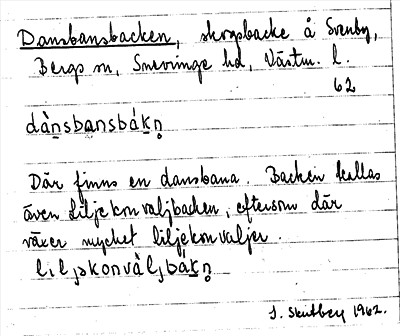 Dansbansbacken, skogsbacke å Svenby,
Bergs sn, Snevringe hd, Västm. l.
62
dànsbansbákn̥
Där finns en dansbana. Backen kallas
även Liljekonvaljbacken, eftersom där
växer mycket liljekonvaljer.
liljəkonvàljbákn̥
1962.